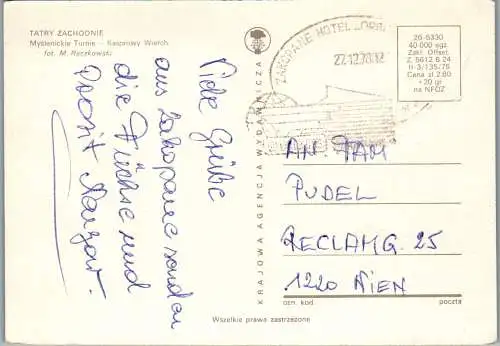 TATRY ZACHODNIE
Myślenickie Turnie - Kasprowy Wierch
fot. M. Raczkowski
Viele Grüße
aus Zakopane senden
die Füchse und
Prosit Neujahr.
KRAJOWA AGENCJA WYDAWNICZA
ZAKOPANE HOTEL "ORBIS
27.12.78.12
26-6330
40 000 egz.
Zakł. Offset.
Z. 5612 B 24
II-3/135/75
Cena zł 2.80
+20 gr
na NFOZ
AN FAM
PUDEL
RECLAMG. 25
1220 WIEN
ozn. kod
poczta
Wszelkie prawa zastrzeżone